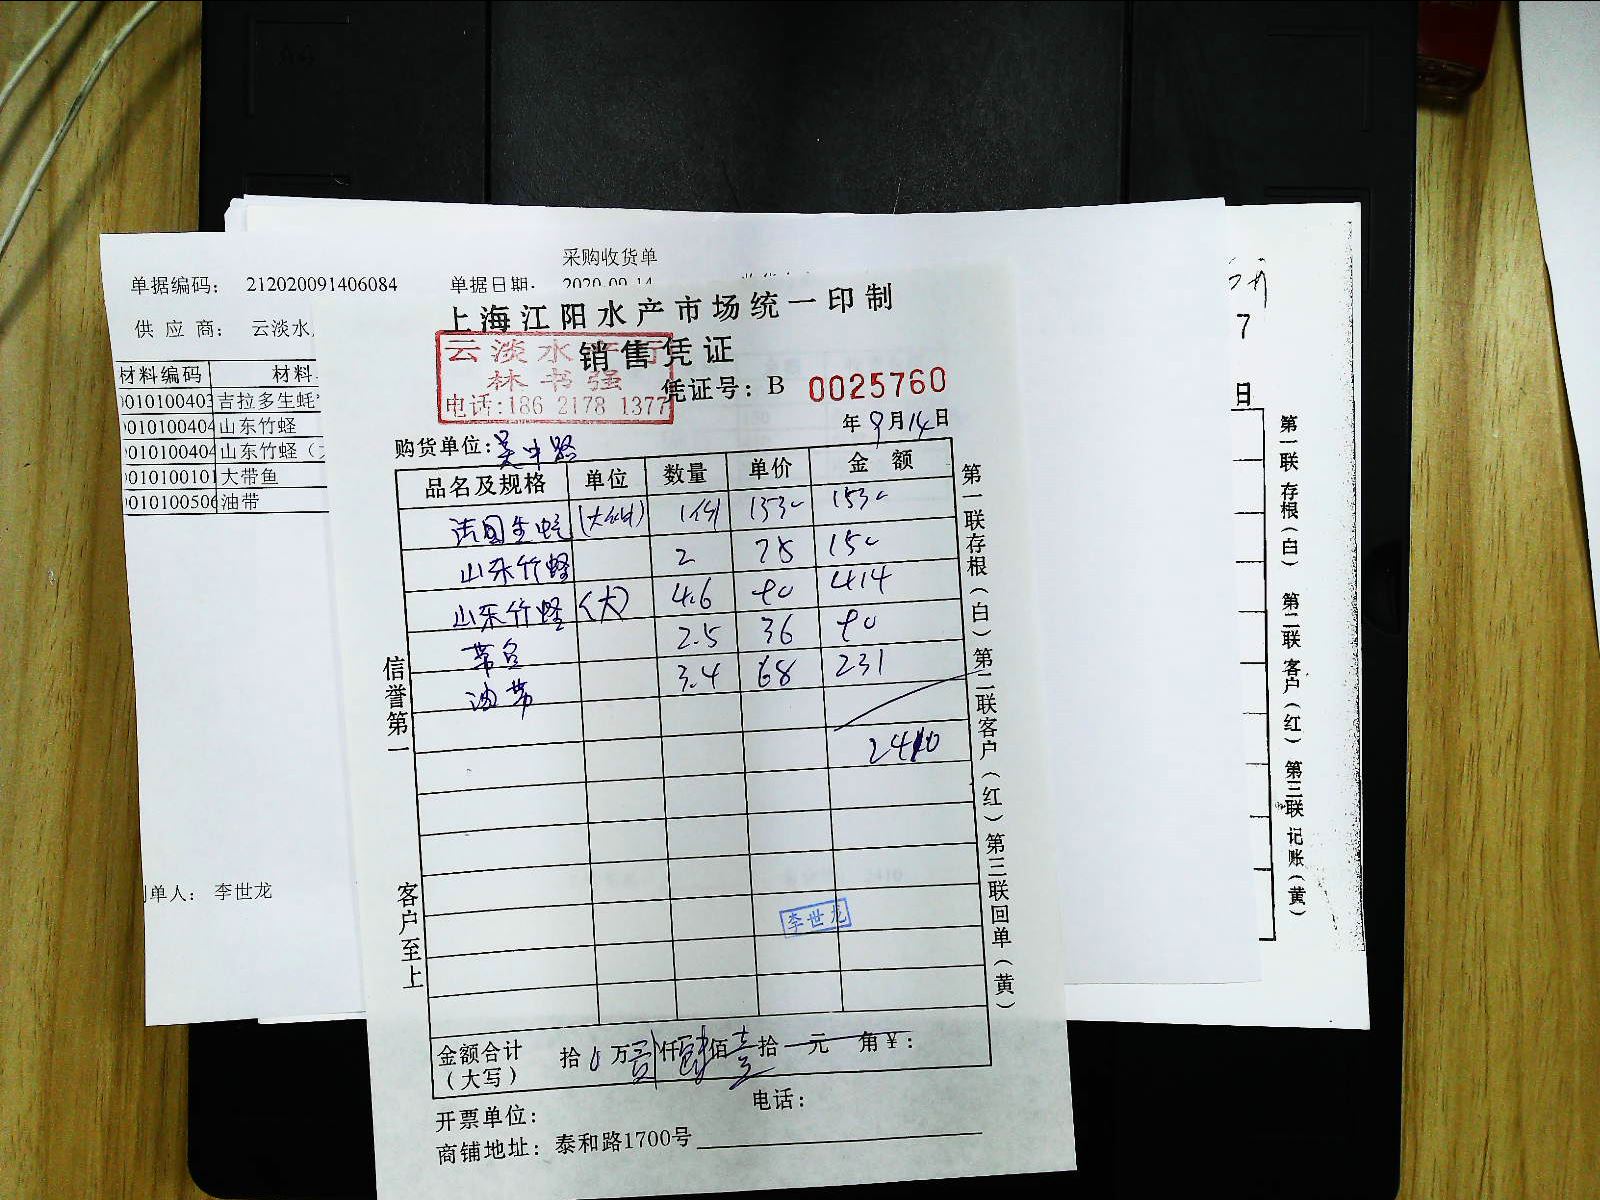 采购收货单
单据编码： 212020091406084 单据日期： 2020-09-14
供 应 商： 云淡水
材料编码 材料
010100403 吉拉多生蚝
010100404 山东竹蛏
010100404 山东竹蛏（大
010100101 大带鱼
010100506 油带
制单人： 李世龙
上海江阳水产市场统一印制
销售凭证
云淡水产行
林书强
电话:186 2178 1377
凭证号：B 0025760
年9月14日
购货单位：吴中路
品名及规格 单位 数量 单价 金 额
法国生蚝 1件 1530 1530
山东竹蛏 2 75 150
山东竹蛏 (大) 4.6 90 414
带鱼 2.5 36 90
油带 3.4 68 231
2410
李世龙
金额合计（大写） 拾 万 贰 仟 肆 佰 壹 拾 元 角￥：
开票单位： 电话：
商铺地址：泰和路1700号
信誉第一
客户至上
第一联存根（白）第二联客户（红）第三联回单（黄）
7
日
第一联 存根（白） 第二联 客户（红） 第三联 记账（黄）